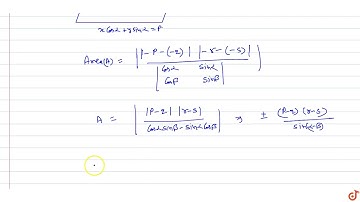 x Cosα + y Sinα = P
Area(A) = | |-P-(-q)| |-r-(-s)| / | Cosα Sinα Cosβ Sinβ | |
A = | |P-q| |r-s| / Cosα Sinβ - Sinα Cosβ | ± (P-q) (r-s) / Sin(α-β)